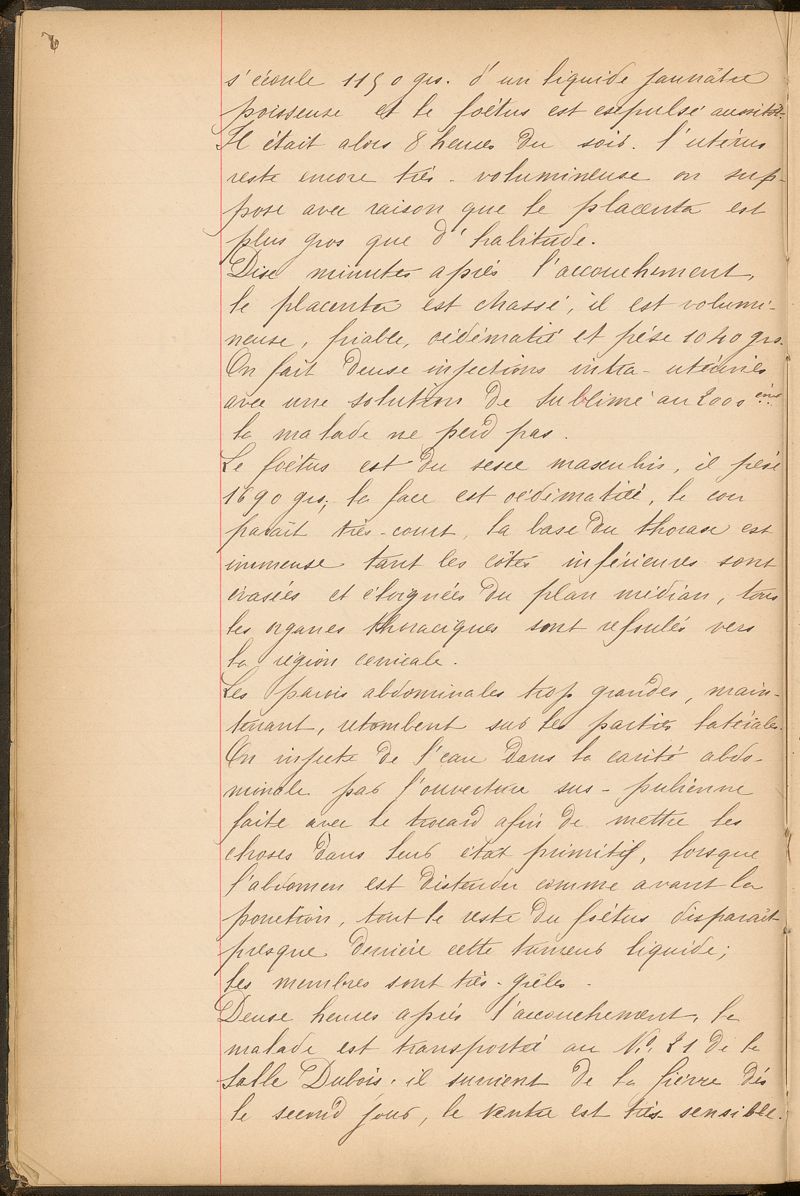 s'écoule 1150 grs. d'un liquide jaunâtre
poisseuse et le foétus est expulsé aussitôt.
Il était alors 8 heures du soir. l'utérus
reste encore très-volumineuse on sup-
pose avec raison que le placenta est
plus gros que d'habitude.
Dix minutes après l'accouchement,
le placenta est chassé, il est volumi-
neuse, friable, oédématié et pése 1040 grs.
On fait deux injections intra-utérines
avec une solution de Sublimé au 2000 ème
la malade ne perd pas.
Le foétus est du sexe masculin, il pése
1690 grs, la face est oédématiée, le cou
parait très-court, la base du thorax est
immense tant les côtes inférieures sont
évasées et éloignées du plan médian, tous
les organes thoraciques sont refoulés vers
la région cervicale.
Les parois abdominales trop grandes, main-
tenant, retombent sur les parties latérales.
On injecte de l'eau dans la cavité abdo-
minale par l'ouverture sus-pubienne
faite avec le trocard afin de mettre les
choses dans leur état primitif, lorsque
l'abdomen est distendu comme avant la
ponction, tout le reste du foétus disparait
presque derrière cette tumeur liquide;
les membres sont très-grêles.
Deux heures après l'accouchement, la
malade est transportée au No. 21 de la
Salle Dubois. il survient de la fièvre dès
le second jour, le ventre est très sensible.